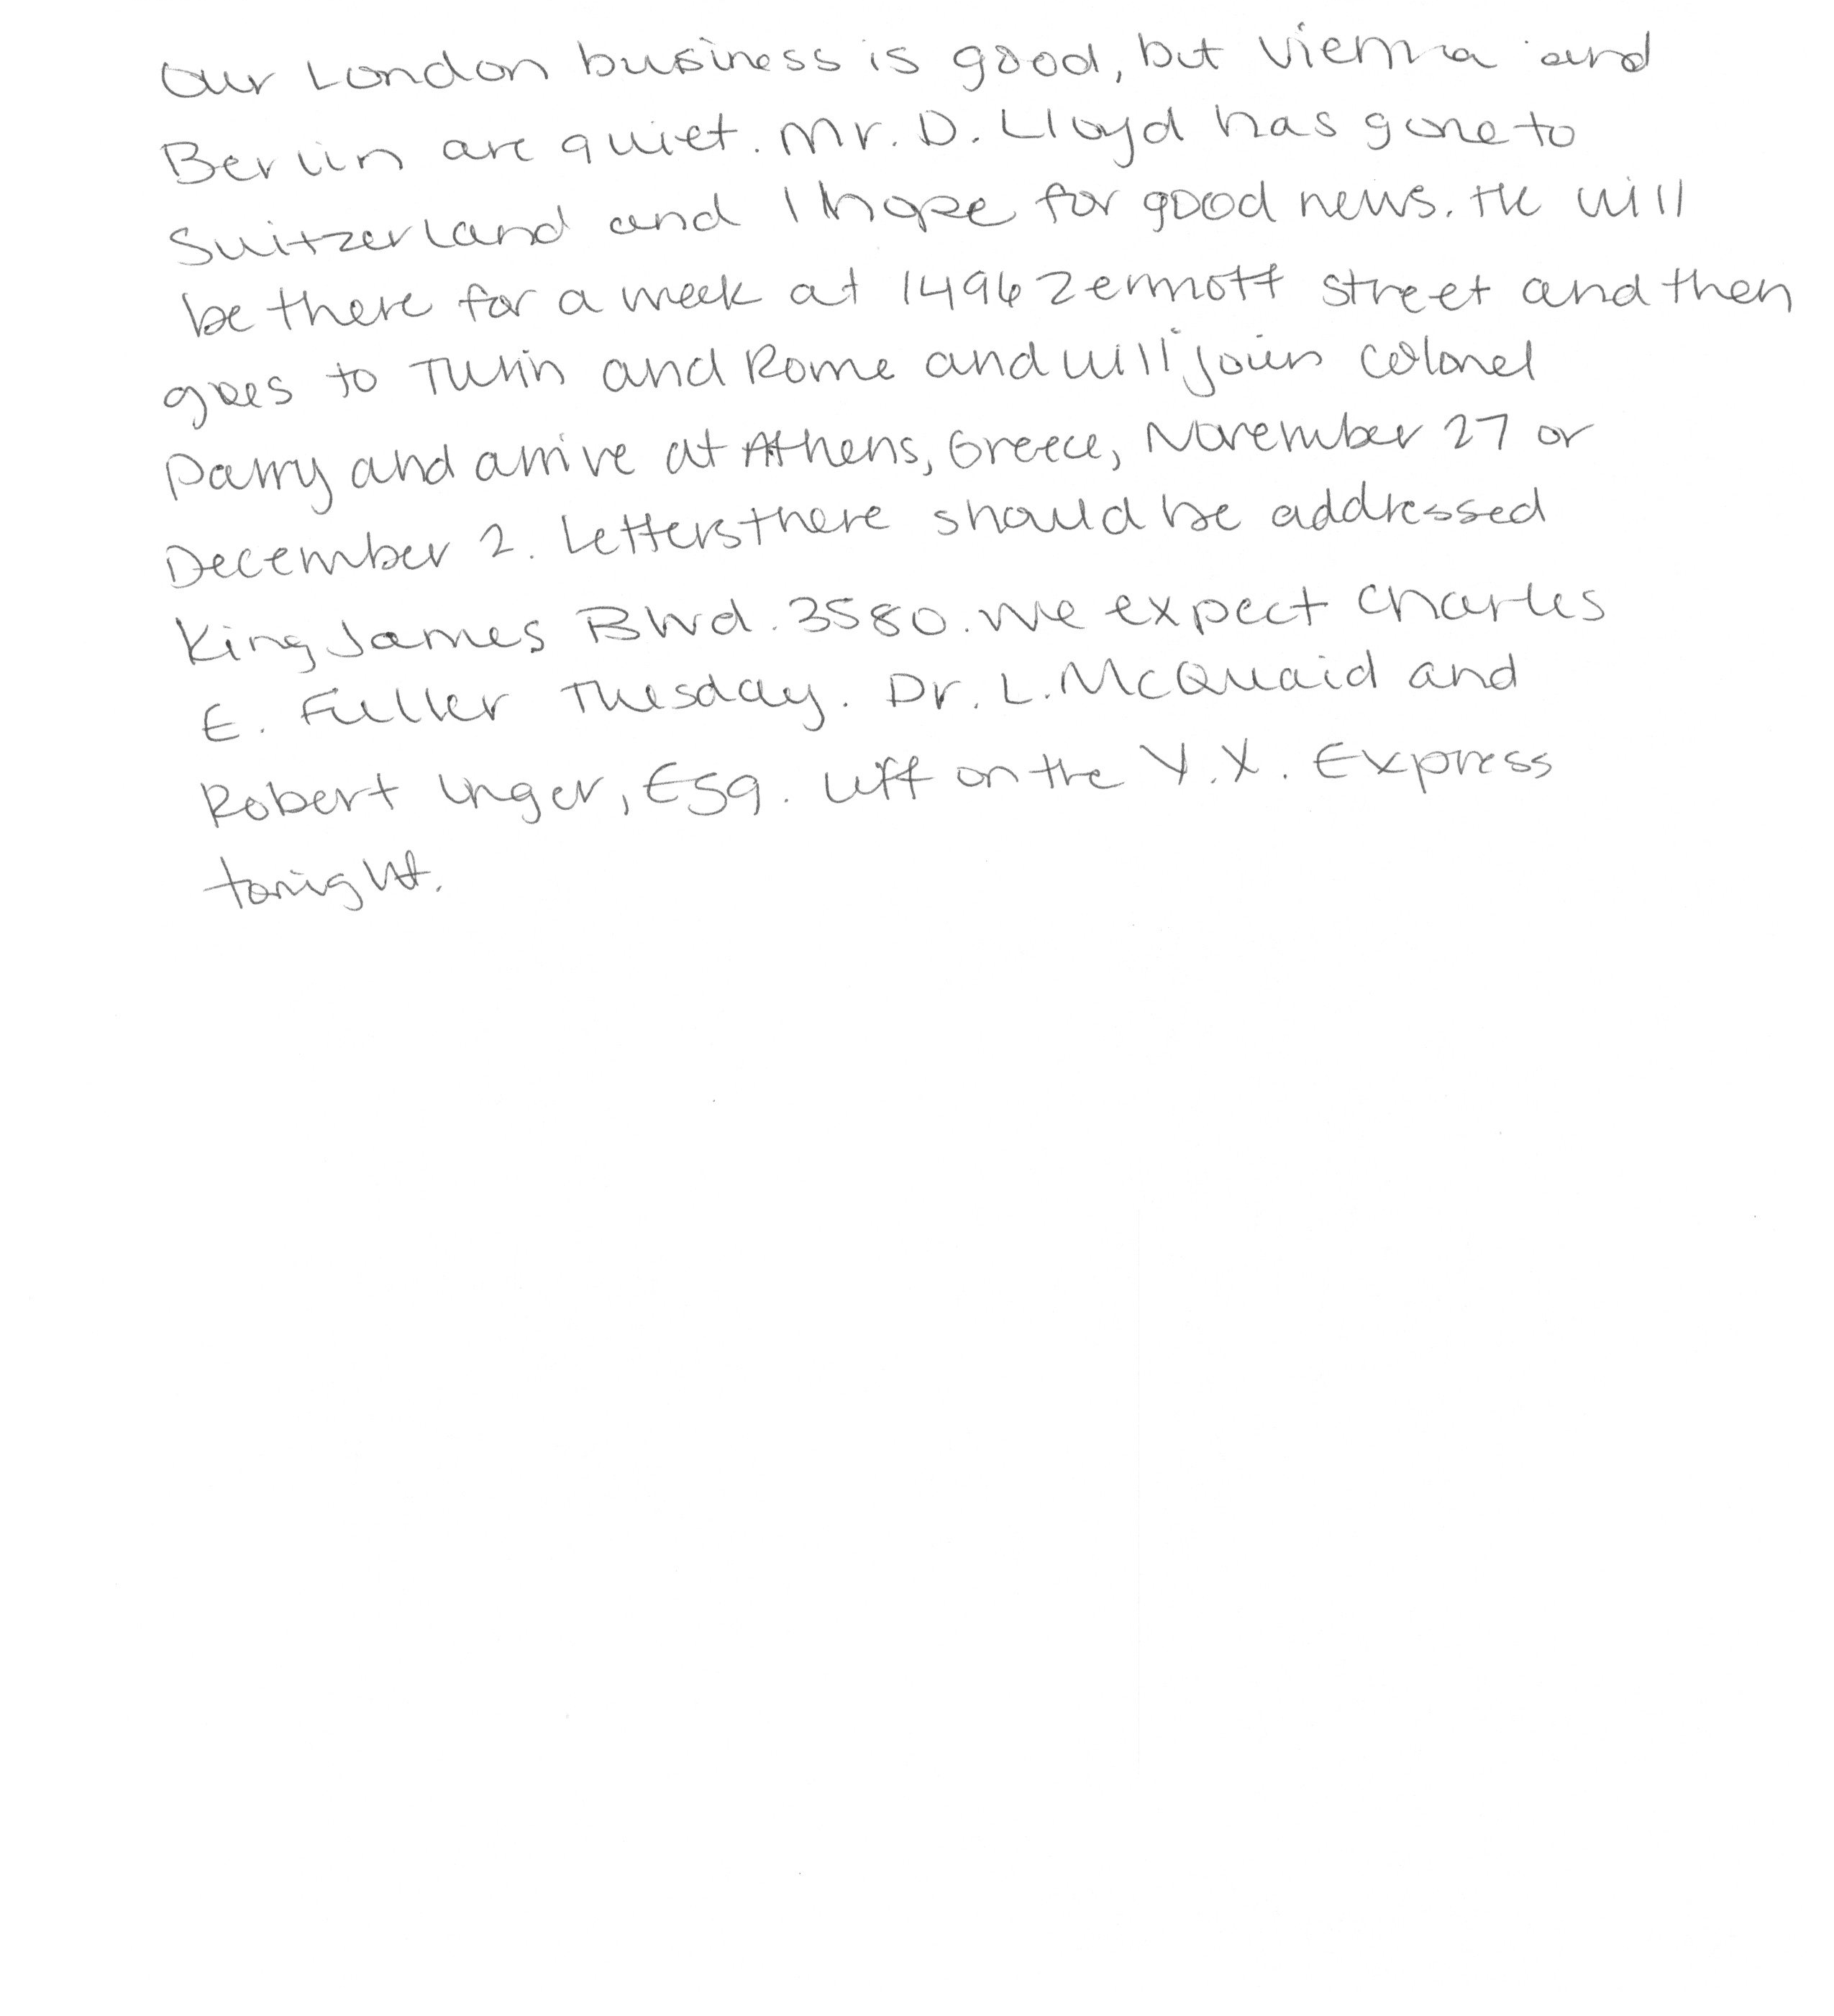 Our London business is good, but Vienna and
Berlin are quiet. Mr. D. Lloyd has gone to
Switzerland and I hope for good news. He will
be there for a week at 1496 Zermott Street and then
goes to Turin and Rome and will join Colonel
Parry and arrive at Athens, Greece, November 27 or
December 2. Letters there should be addressed
King James Blvd. 3580. We expect Charles
E. Fuller Tuesday. Dr. L. McQuaid and
Robert Unger, Esq. left on the Y.X. Express
tonight.